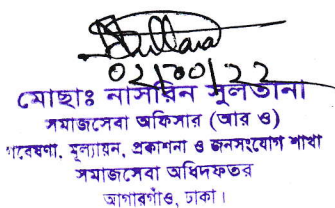 Sultana
02/10/22
মোছাঃ নাসরিন সুলতানা
সমাজসেবা অফিসার (আর ও)
গবেষণা, মূল্যায়ন, প্রকাশনা ও জনসংযোগ শাখা
সমাজসেবা অধিদফতর
আগারগাঁও, ঢাকা।